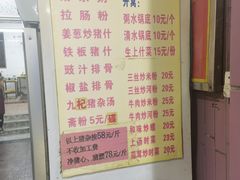 拉肠粉
姜葱炒猪什
铁板猪什
豉汁排骨
椒盐排骨
九杞猪杂汤
斋粉5元/碟
以上猪杂按58元/斤
不收加工费
净猪心、猪腰78元/斤
粥水锅底 10元/个
清水锅底 10元/个
生上什菜 15元/份
三丝炒米粉 20元
三丝炒河粉 20元
牛肉炒米粉 20元
牛肉炒河粉 20元
和味炒螺 20元
上汤时菜 20元
炒时菜 20元